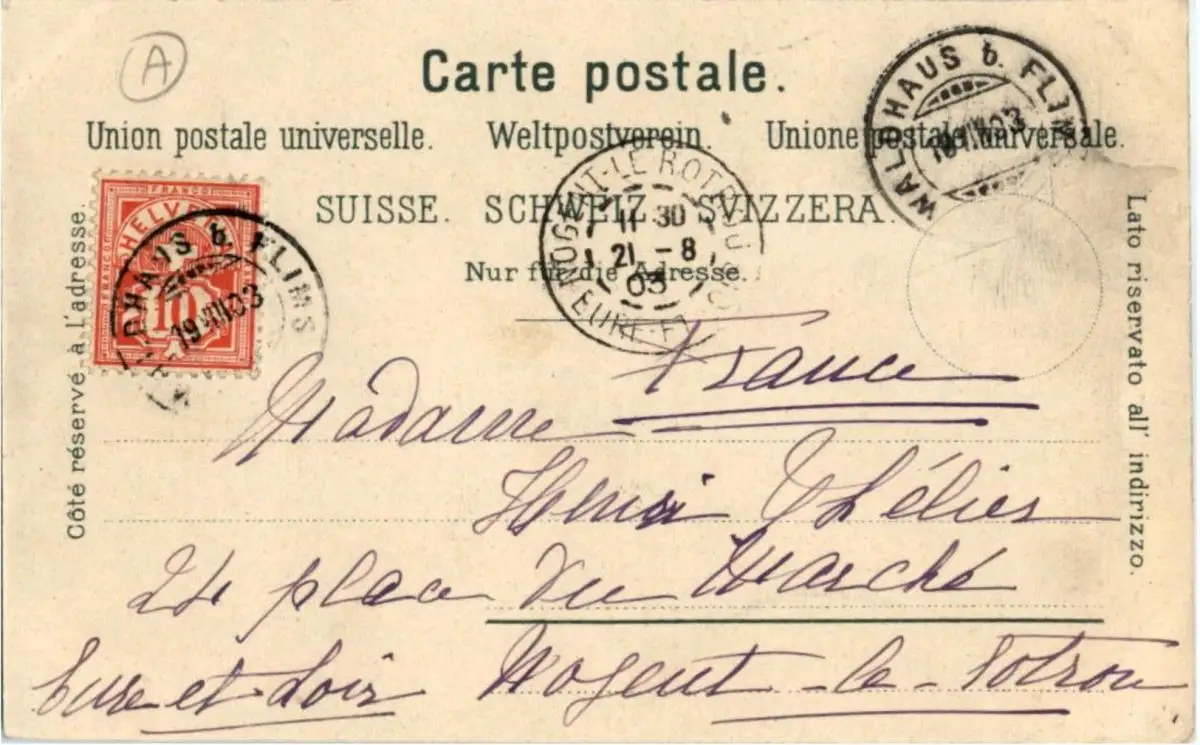 A
Carte postale.
Union postale universelle. Weltpostverein. Unione postale universale.
SUISSE. SCHWEIZ. SVIZZERA.
Nur für die Adresse.
Côté réservé à l'adresse.
Lato riservato all' indirizzo.
WALDHAUS b. FLIMS
19.VIII.03
NOGENT-LE-ROTROU
11 30
21 - 8
03
EURE-ET
FRANCO
HELVETIA
10
WALDHAUS b. FLIMS
19.VIII.03
France
Madame
Henri Thélier
24 place du Marché
Nogent-le-Rotrou
Eure et Loir